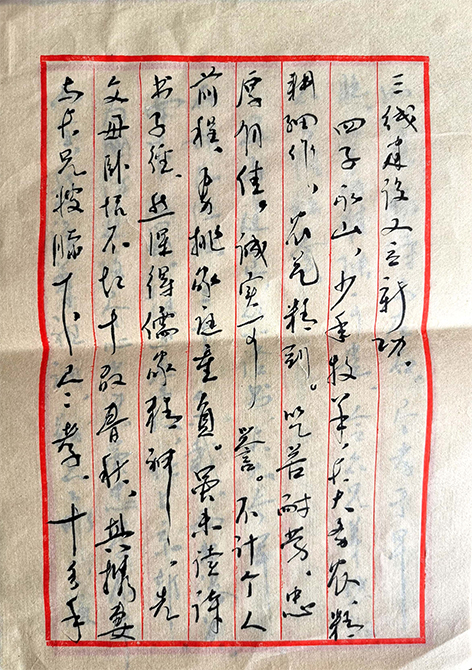 三线建设又立新功。
四子永山，少年牧羊，长大务农，精
耕细作，农艺精到。吃苦耐劳，忠
厚佳。诚实可誉。不计个人
前程，勇挑家庭重负。虽未读诗
书子经，然深得儒家精神。先
父母卧炕不起十数春秋，其携妻
与长兄嫂膝下尽孝。十多年